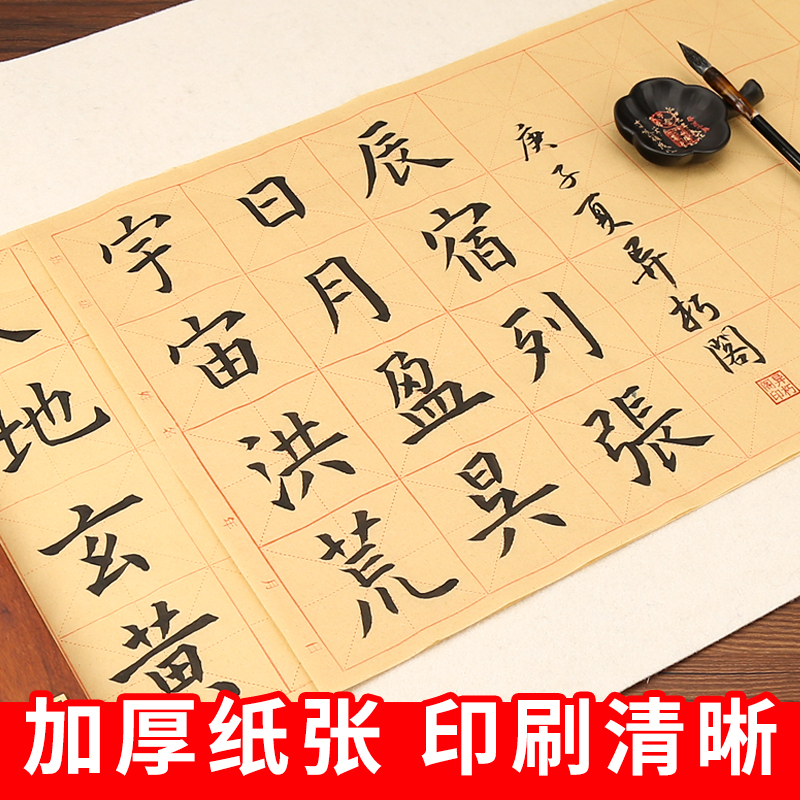 地玄黄
宇宙洪荒
日月盈昃
辰宿列張
庚子夏异朽閣
年 月 日
加厚纸张 印刷清晰